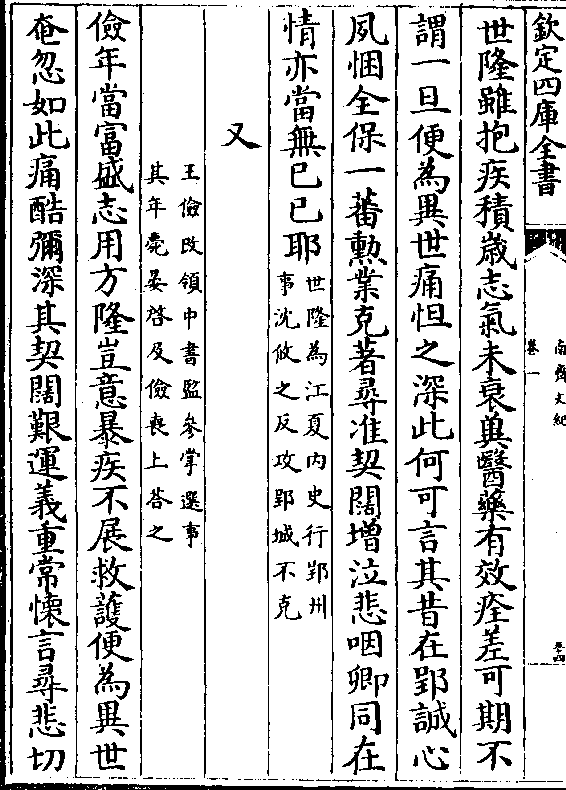 欽定四庫全書
南齊文紀
卷一
世隆雖抱疾積嵗志氣未衰冀醫藥有效痊差可期不
謂一旦便為異世痛怛之深此何可言其昔在郢誠心
夙悃全保一蕃勲業克著尋准契闊增泣悲咽卿同在
情亦當無已已耶
世隆為江夏内史行郢州
事沈攸之反攻郢城不克
又
王儉改領中書監叅掌選事
其年薨晏啓及儉喪上荅之
儉年當富盛志用方隆豈意暴疾不展救護便為異世
奄忽如此痛酷彌深其契闊艱運義重常懐言尋悲切